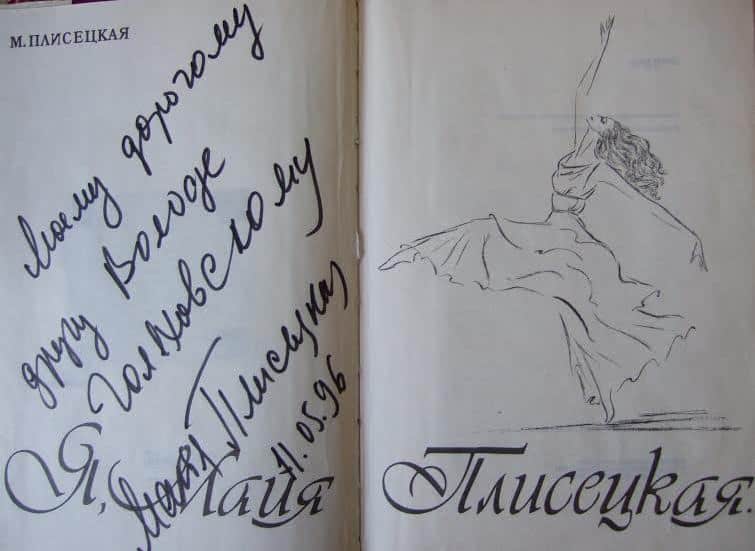 М. ПЛИСЕЦКАЯ
Моему дорогому
другу Володе
Голховскому
Майя Плисецкая
11.05.96
Я, Майя Плисецкая.